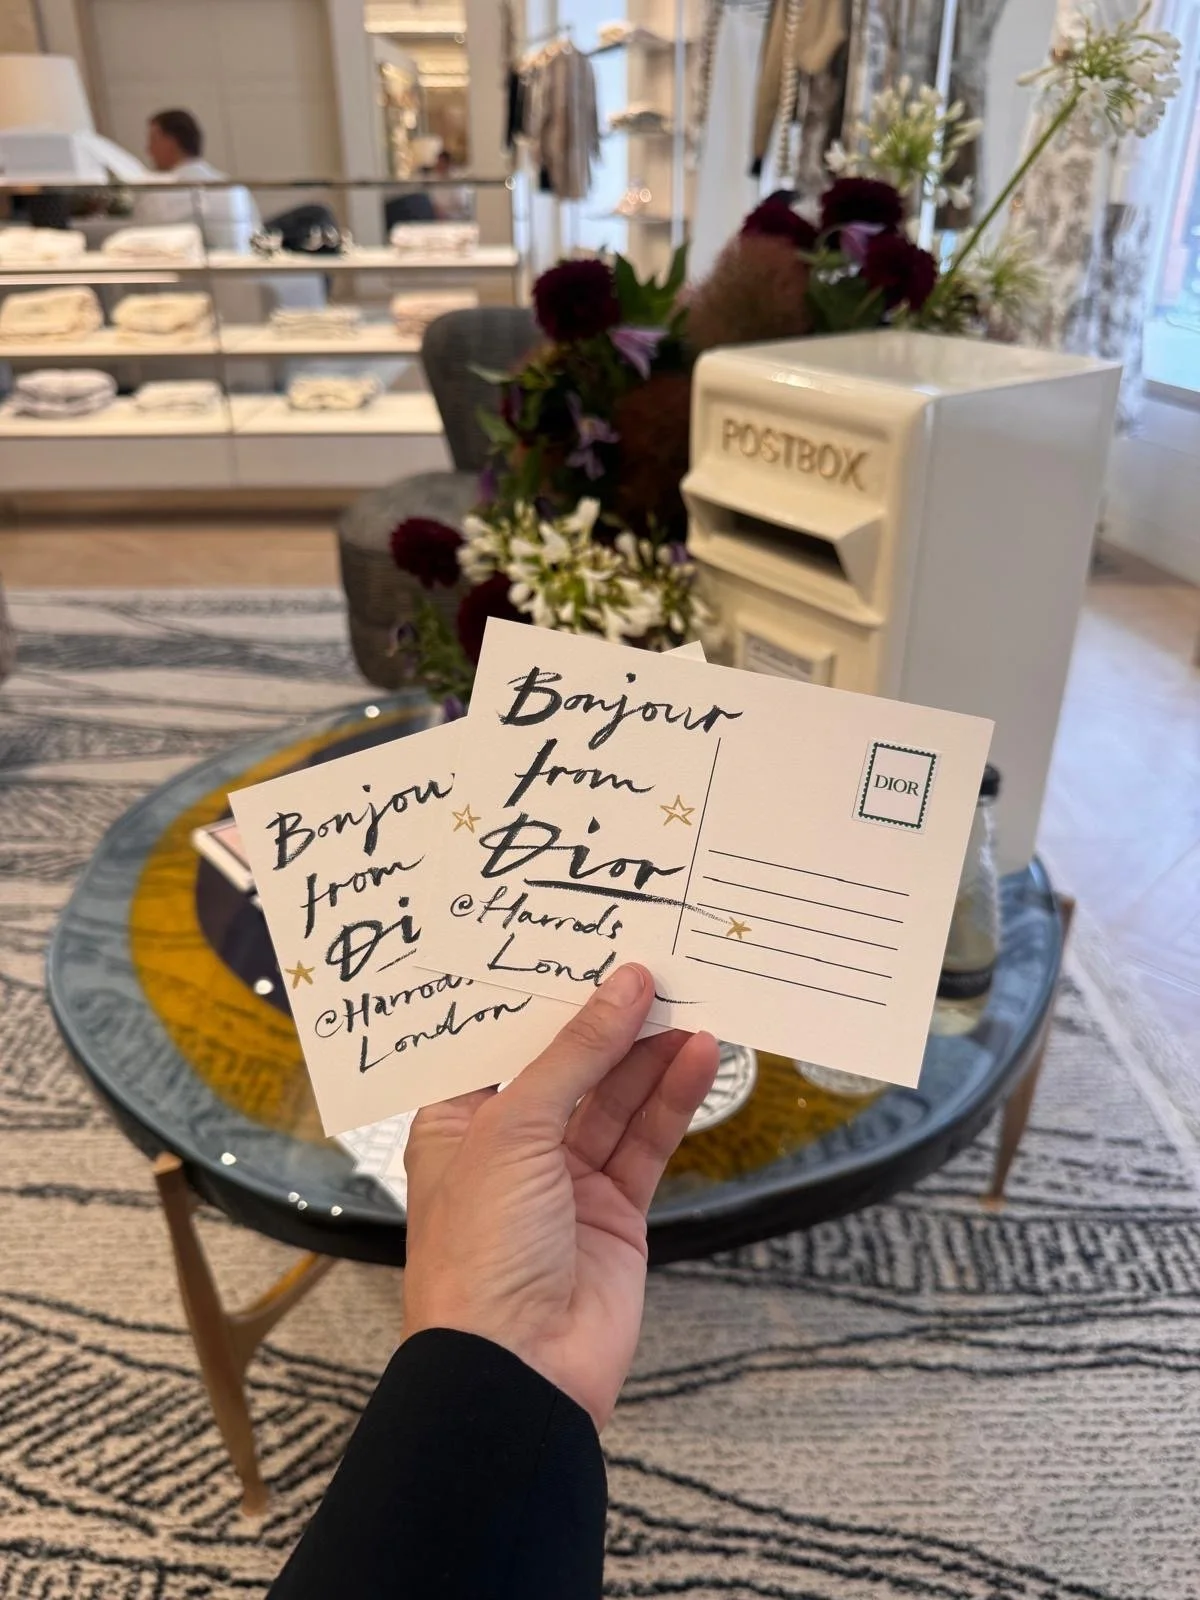 POSTBOX
Bonjour
from
Dior
@Harrods
Lond
DIOR
Bonjou
from
Di
@Harrods
London